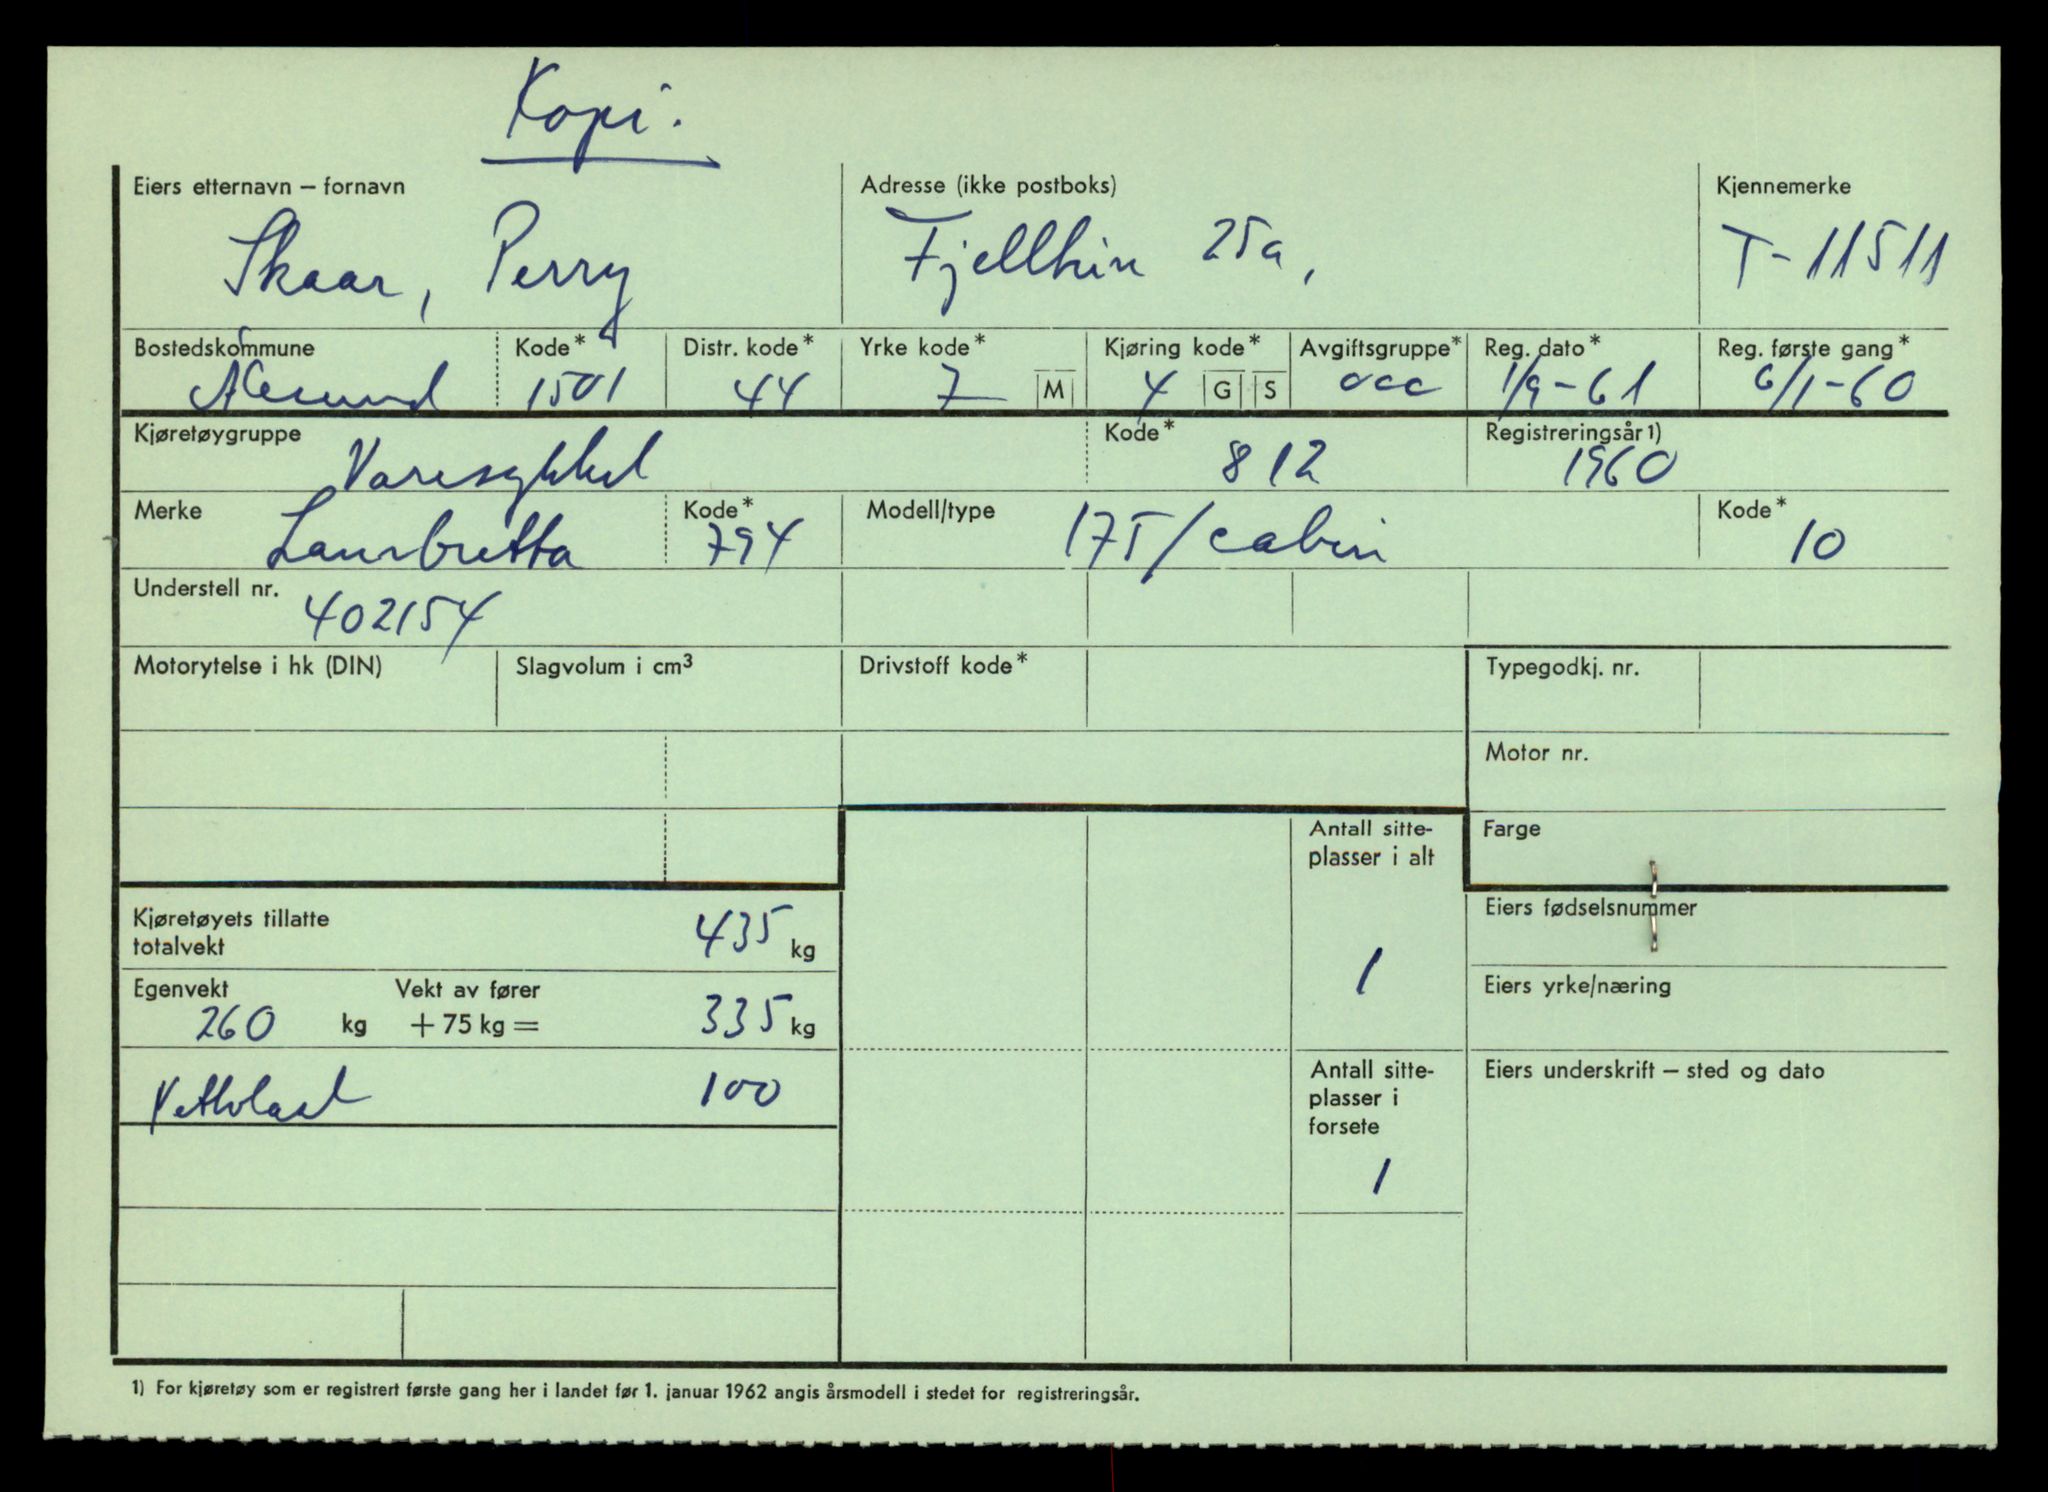 Kopi.
Eiers etternavn – fornavn
Skaar, Perry
Adresse (ikke postboks)
Fjellhin 25a,
Kjennemerke
T-11511
Bostedskommune
Ålesund
Kode*
1501
Distr. kode*
44
Yrke kode*
7 M
Kjøring kode*
4 G S
Avgiftsgruppe*
000
Reg. dato*
1/9-61
Reg. første gang*
6/1-60
Kjøretøygruppe
Varesykkel
Kode*
812
Registreringsår 1)
1960
Merke
Lambretta
Kode*
794
Modell/type
175/cabin
Kode*
10
Understell nr.
402154
Motorytelse i hk (DIN)
Slagvolum i cm³
Drivstoff kode*
Typegodkj. nr.
Motor nr.
Farge
Antall sitte-
plasser i alt
1
Kjøretøyets tillatte
totalvekt
435 kg
Eiers fødselsnummer
Egenvekt
260 kg
Vekt av fører
+ 75 kg =
335 kg
Eiers yrke/næring
Nettolast 100
Antall sitte-
plasser i
forsete
1
Eiers underskrift – sted og dato
1) For kjøretøy som er registrert første gang her i landet før 1. januar 1962 angis årsmodell i stedet for registreringsår.